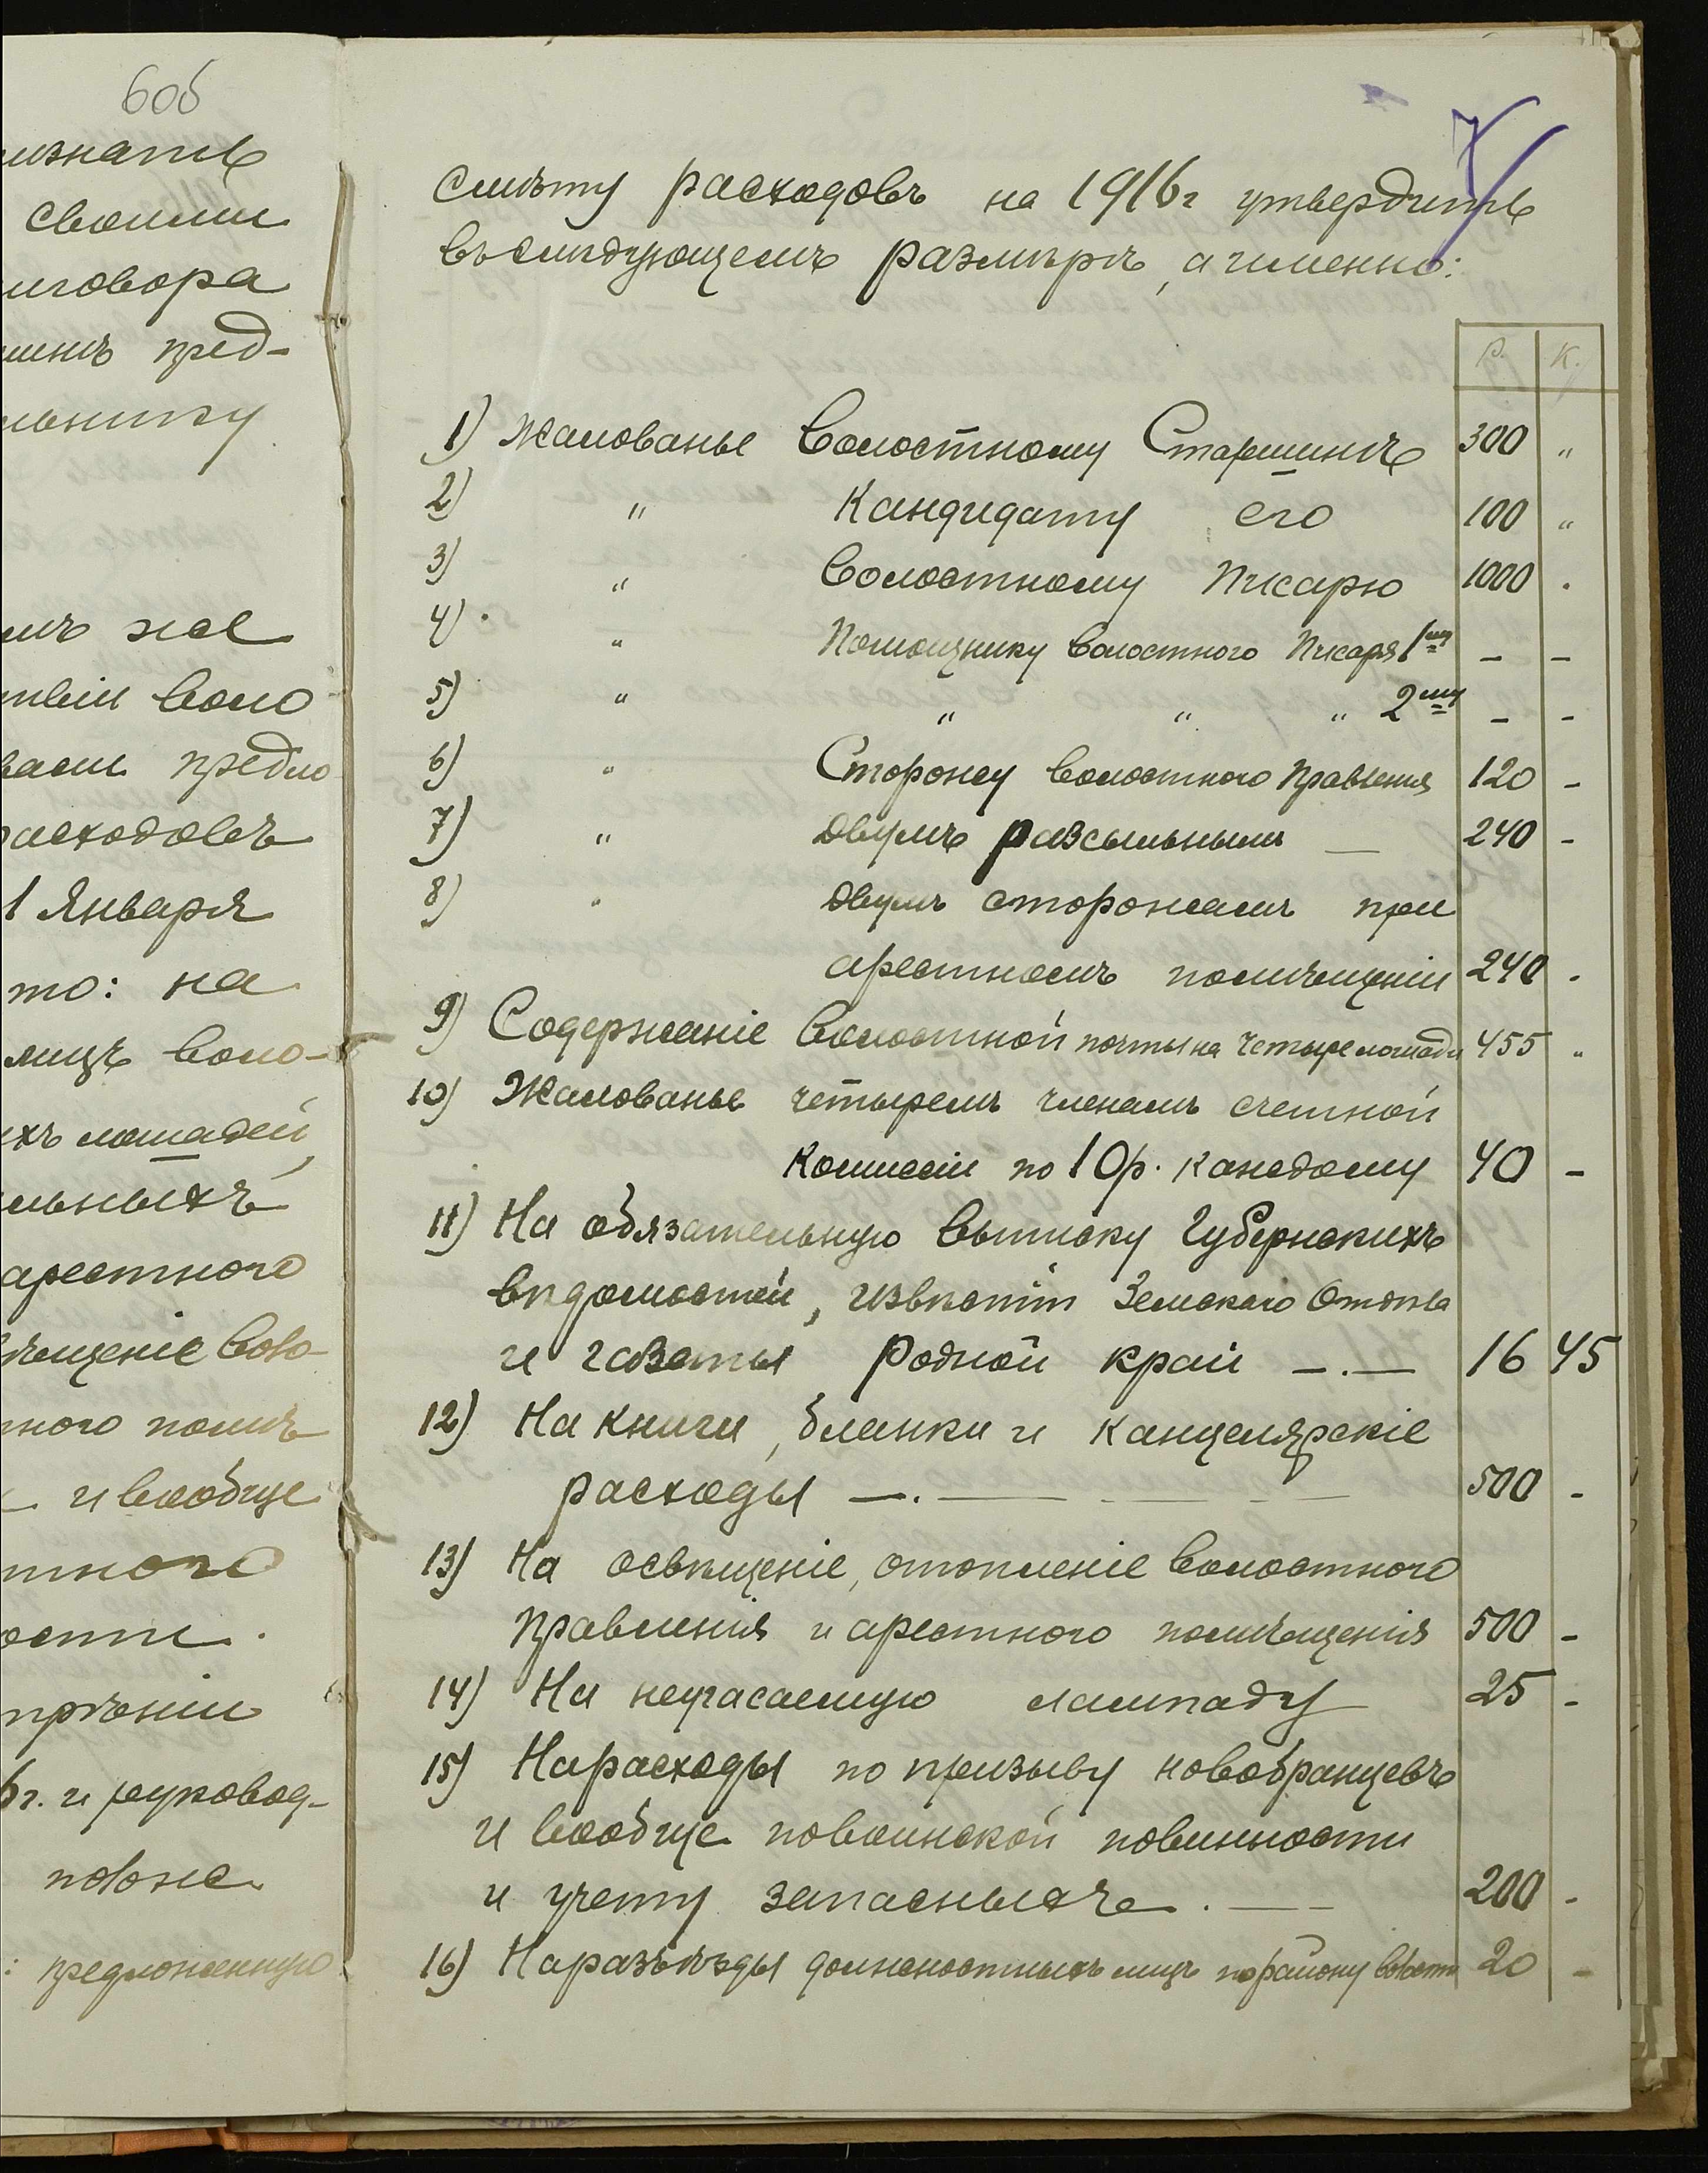 6об
своими
пред-
же
воло
предло
расходовъ
1 Января
то: на
лицъ воло-
лошадей,
арестного
воло-
и вообще
г. и руковод-
предложенную
7
смѣту расходовъ на 1916г утвердить
въ слѣдующемъ размѣрѣ, а именно:
Р. К.
1) Жалованье Волостному Старшинѣ 300 "
2) " Кандидату его 100 "
3) " Волостному Писарю 1000 .
4) " Помощнику Волостного Писаря 1му - -
5) " " " " 2му - -
6) " Сторожу Волостного Правленія 120 -
7) " Двумъ разсыльнымъ — 240 -
8) " Двумъ сторожамъ при
арестномъ помѣщеніи 240 -
9) Содержаніе Волостной почты на четыре лошади 455 "
10) Жалованье четыремъ членамъ счетной
Комиссіи по 10р. каждому 40 -
11) На обязательную выписку Губернскихъ
вѣдомостей, извѣстій Земскаго Отдѣла
и газеты Родной край — . — 16 45
12) На книги, бланки и канцелярскіе
расходы — . — 500 -
13) На освѣщеніе, отопленіе Волостного
Правленія и арестного помѣщенія 500 -
14) На неугасаемую лампаду 25 -
15) На расходы по призыву новобранцевъ
и вообще по воинской повинности
и учету запасныхъ . — 200 -
16) На разъѣзды должностныхъ лицъ по району волости 20 -